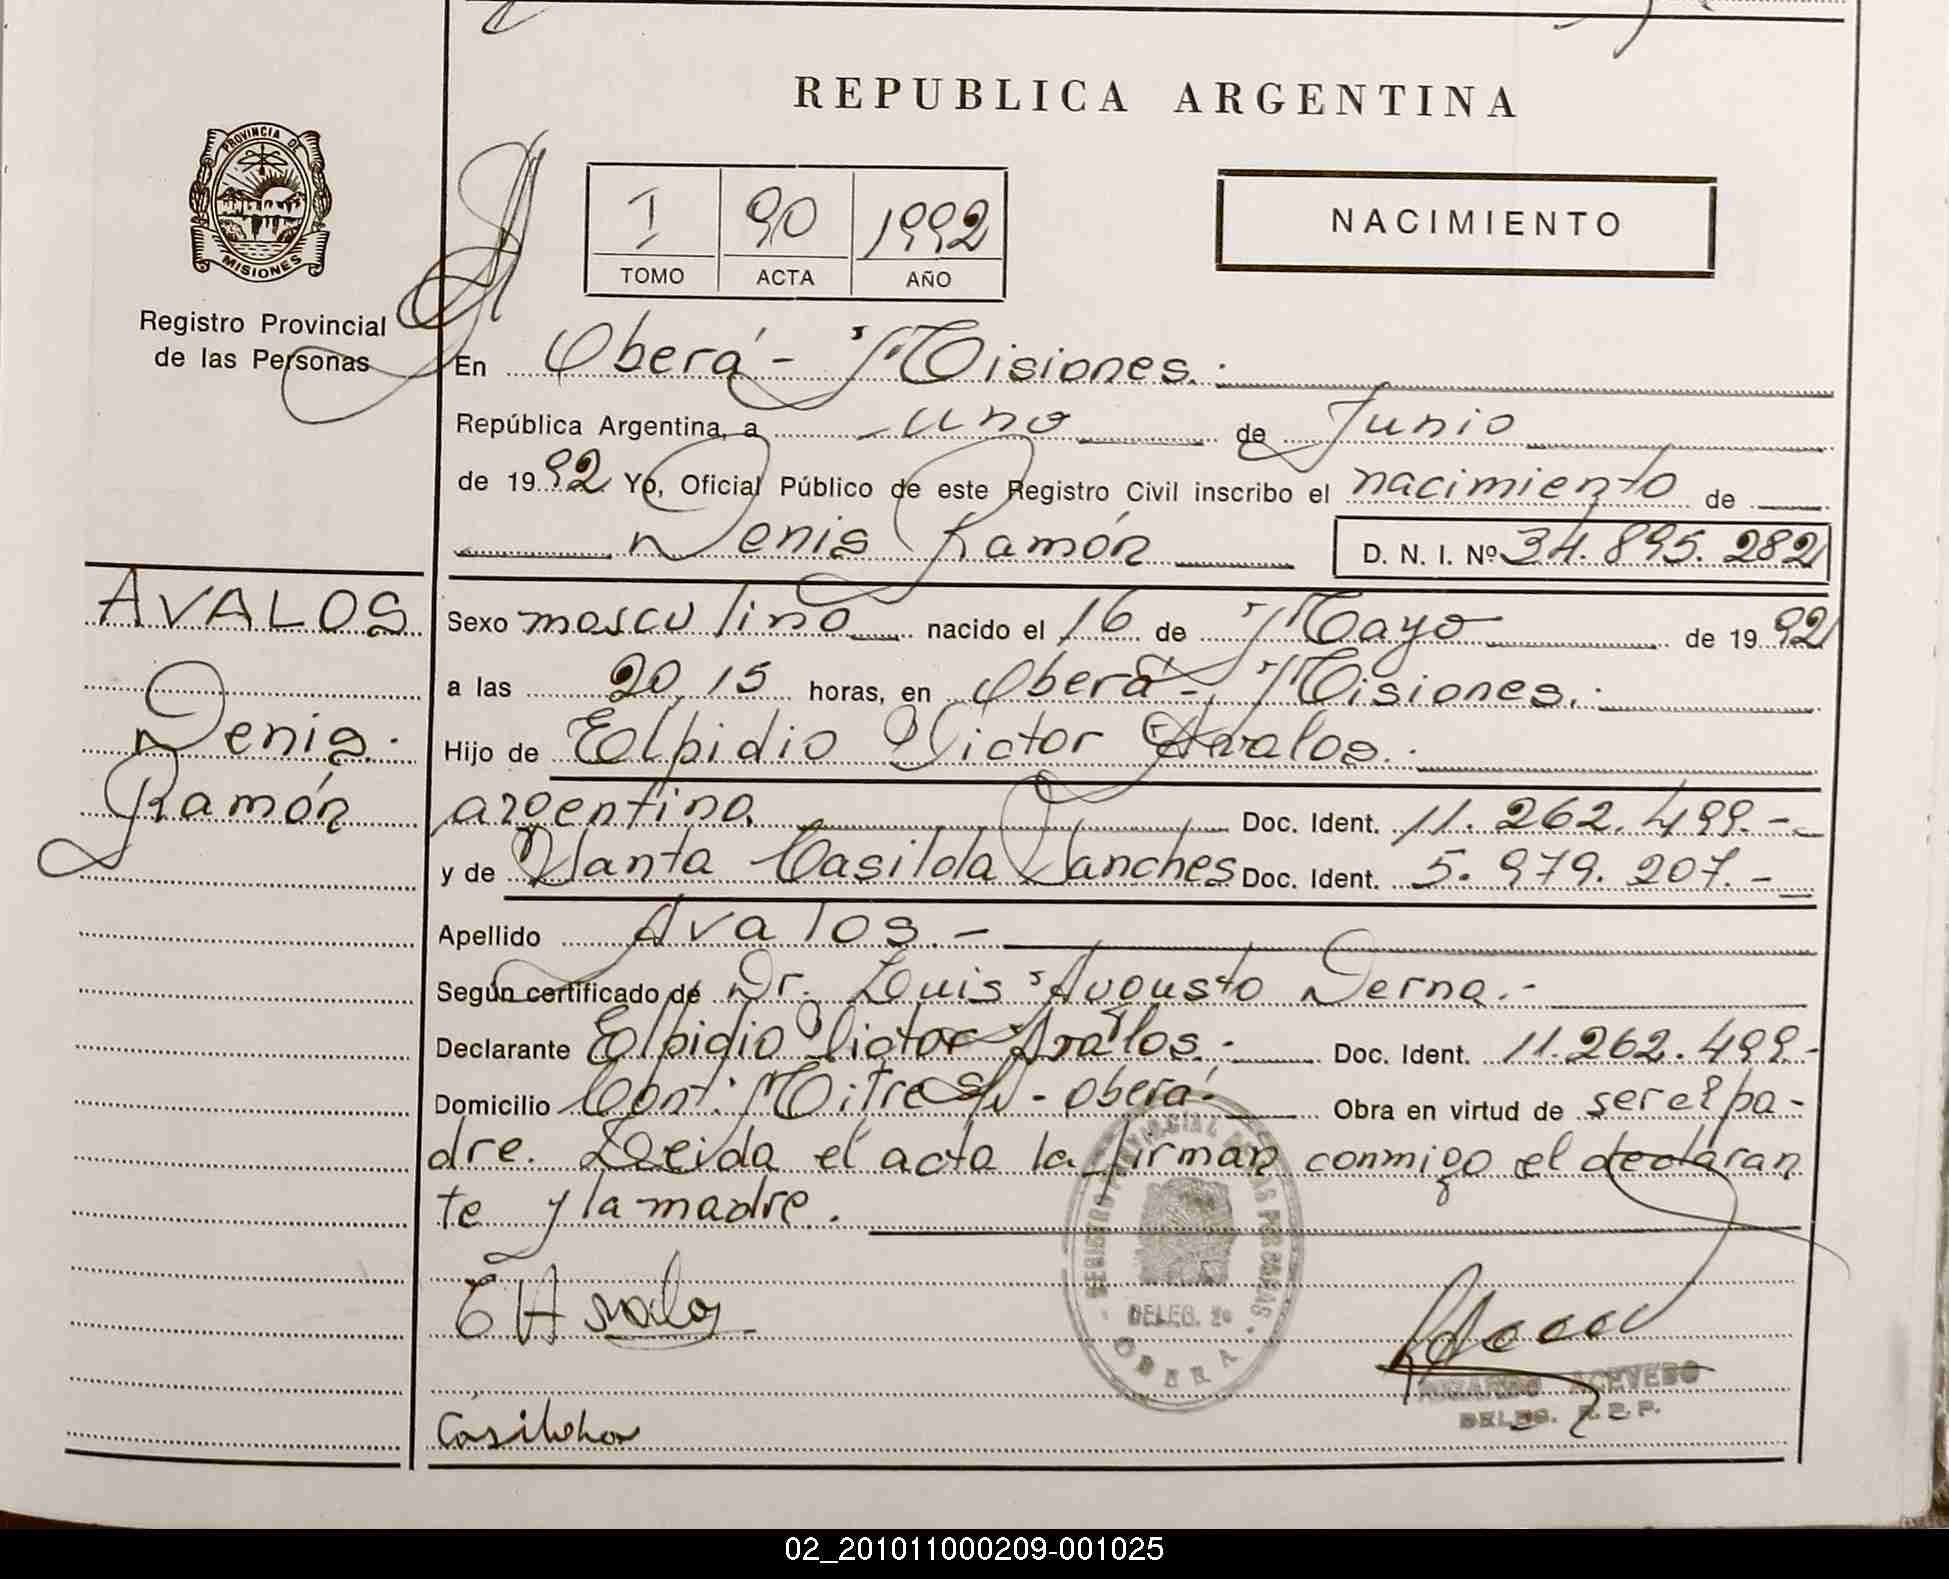 REPUBLICA ARGENTINA
PROVINCIA DE
MISIONES
Registro Provincial
de las Personas
I 90 1992
TOMO ACTA AÑO
NACIMIENTO
En Oberá - Misiones.
República Argentina, a uno de Junio
de 1992 Yo, Oficial Público de este Registro Civil inscribo el nacimiento de
Denis Ramón D. N. I. Nº 34.895.282
AVALOS
Denis
Ramón
Sexo masculino nacido el 16 de Mayo de 1992
a las 20,15 horas, en Oberá - Misiones.
Hijo de Elpidio Victor Avalos.
argentino Doc. Ident. 11.262.499.-
y de Santa Casilda Sanches Doc. Ident. 5.979.207.-
Apellido Avalos.-
Según certificado de Dr. Luis Augusto Derna.-
Declarante Elpidio Victor Avalos. Doc. Ident. 11.262.499-
Domicilio Cont. Mitre S/N - Oberá. Obra en virtud de ser el pa-
dre. Leida el acta la firman conmigo el declaran
te y la madre.
E H Avalos
DELEG. 2º
OBERA
ACEVEDO
DELEG. R.P.P.
Casilda
02_201011000209-001025